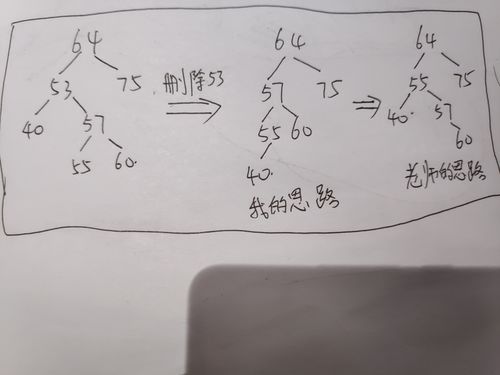 64 64 64
53 75 删除53 57 75 55 75
40 57 55 60 40 57
55 60 40 60
我的思路 老师的思路